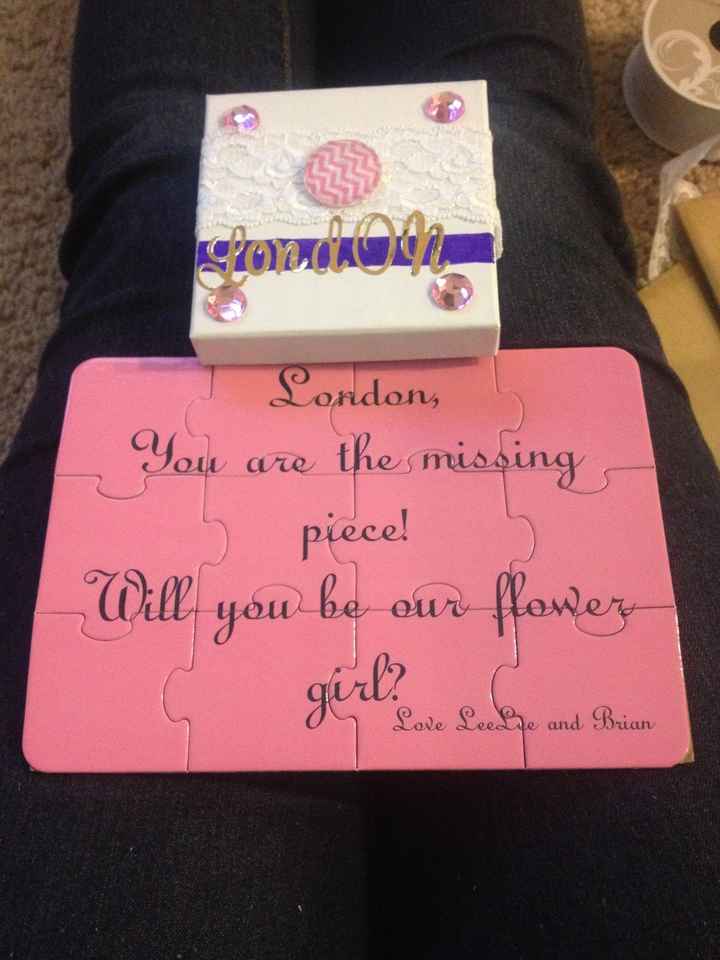 LondON
London,
You are the missing
piece!
Will you be our flower
girl?
Love LeeLee and Brian